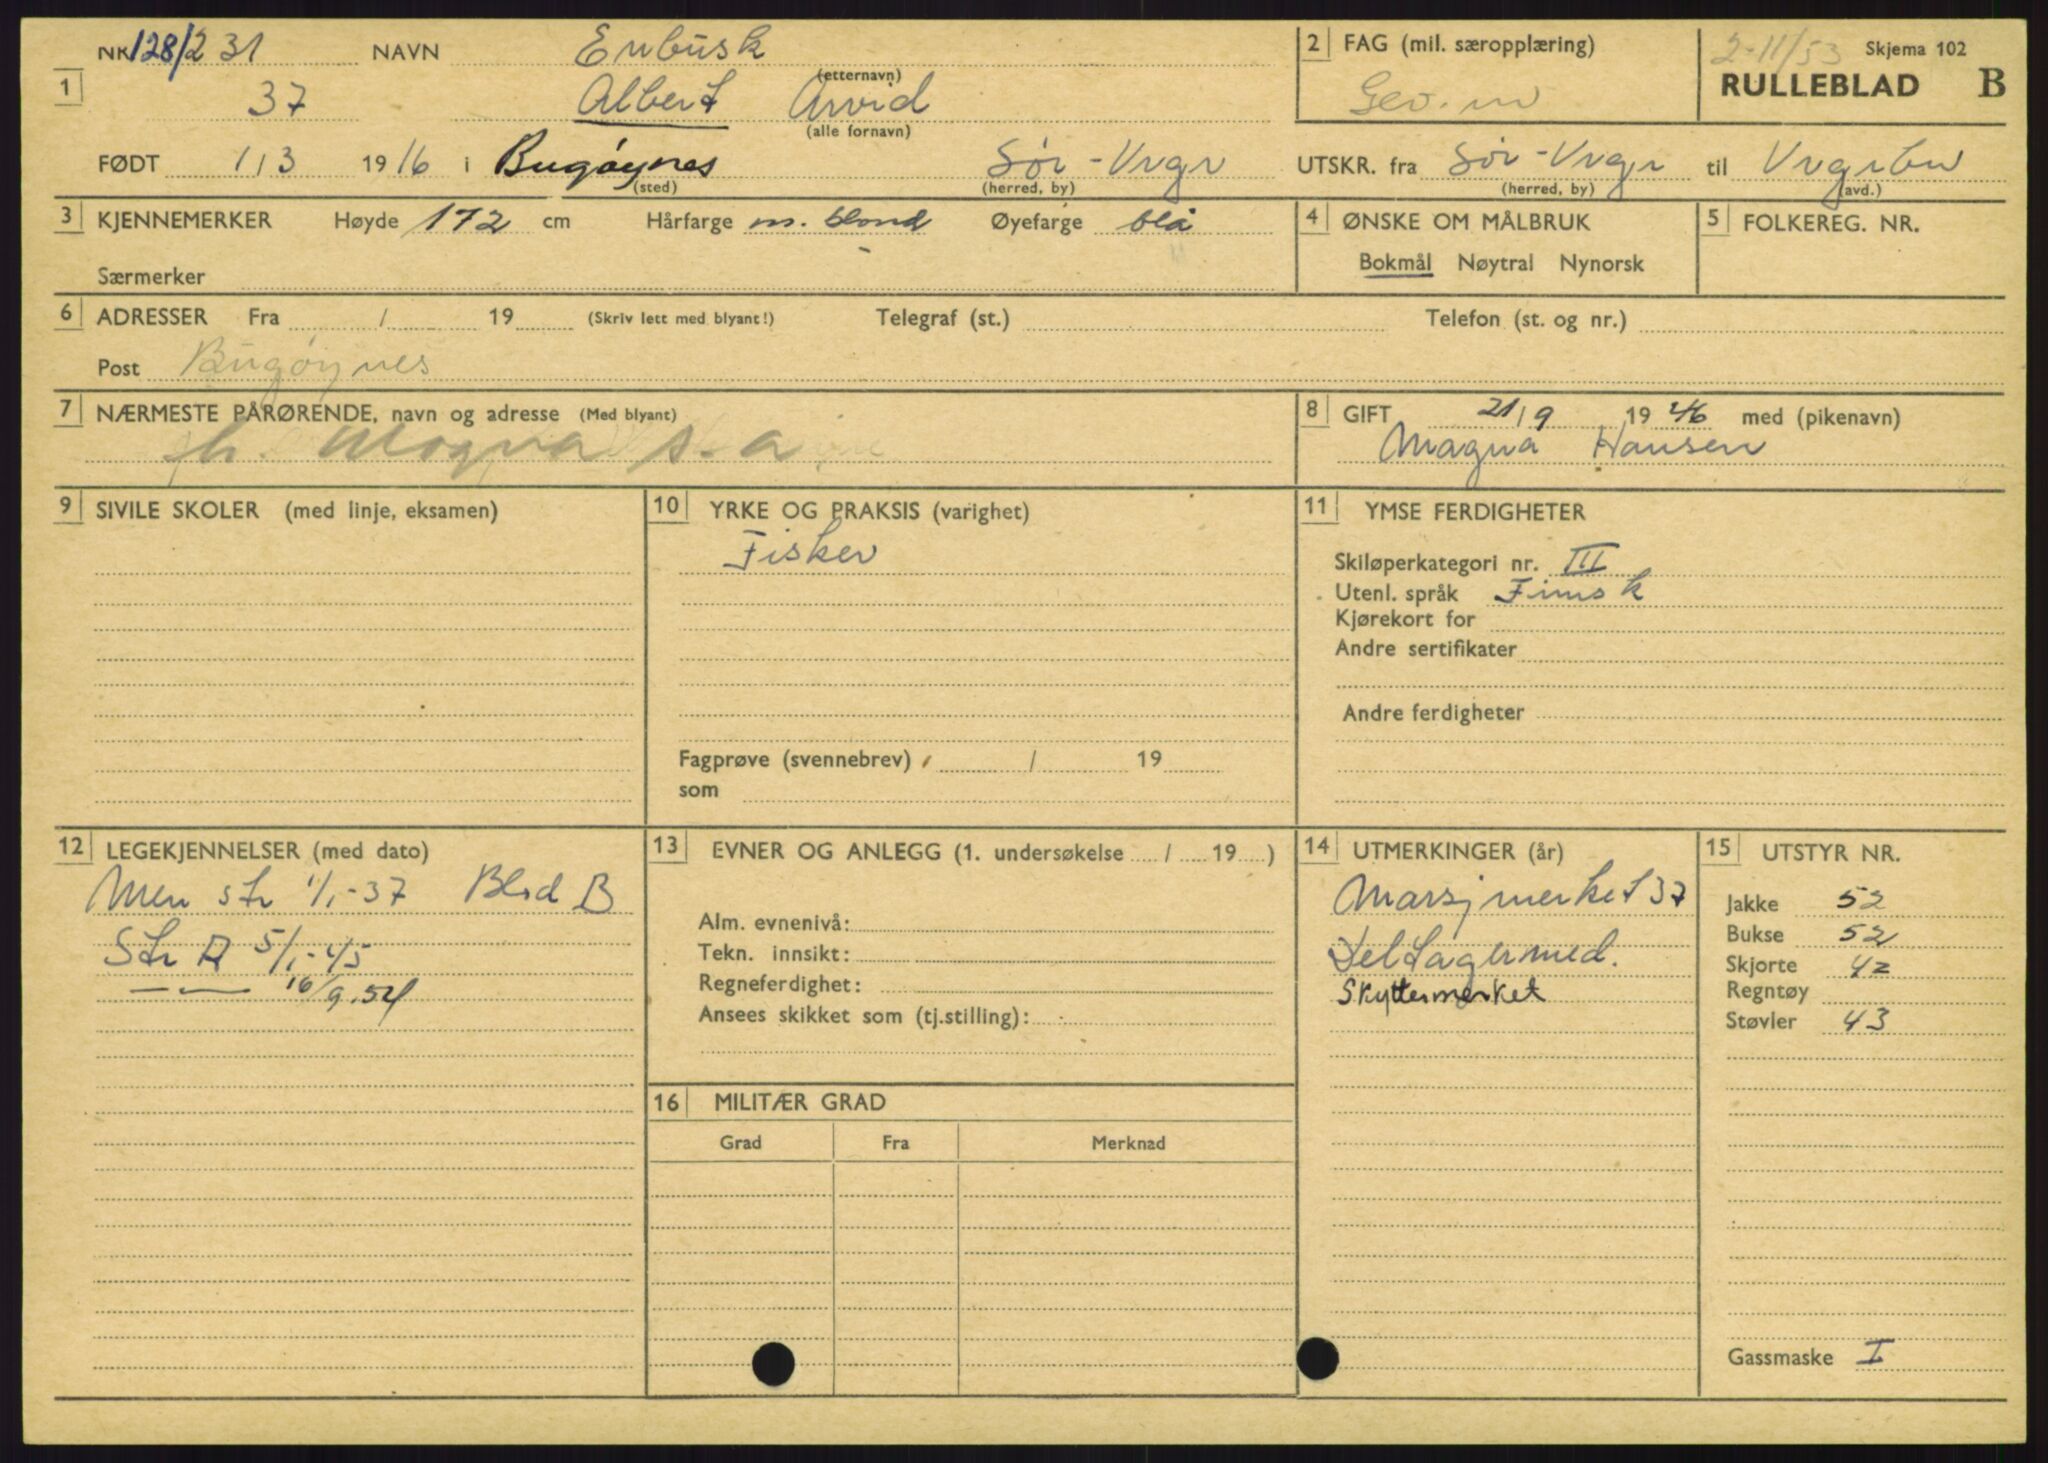 NR 128/2 31 NAVN Enbusk (etternavn)
1 37 Albert Arvid (alle fornavn)
2 FAG (mil. særopplæring)
Gev. m
2-11/53 Skjema 102
RULLEBLAD B
FØDT 1/3 1916 i Bugøynes (sted) Sør-Vrgr (herred, by) UTSKR. fra Sør-Vrgr (herred, by) til Vrgrbn (avd.)
3 KJENNEMERKER Høyde 172 cm Hårfarge m. blond Øyefarge blå
Særmerker
4 ØNSKE OM MÅLBRUK
Bokmål Nøytral Nynorsk
5 FOLKEREG. NR.
6 ADRESSER Fra / 19 (Skriv lett med blyant!) Telegraf (st.) Telefon (st. og nr.)
Post Bugøynes
7 NÆRMESTE PÅRØRENDE, navn og adresse (Med blyant)
h. Magna s.a.
8 GIFT 21/9 1946 med (pikenavn)
Magna Hansen
9 SIVILE SKOLER (med linje, eksamen)
10 YRKE OG PRAKSIS (varighet)
Fisker
Fagprøve (svennebrev) / 19
som
11 YMSE FERDIGHETER
Skiløperkategori nr. III
Utenl. språk Finsk
Kjørekort for
Andre sertifikater
Andre ferdigheter
12 LEGEKJENNELSER (med dato)
Men str 1/1-37 Blad B
Str A 5/1-45
— — 16/9.54
13 EVNER OG ANLEGG (1. undersøkelse / 19 )
Alm. evnenivå:
Tekn. innsikt:
Regneferdighet:
Ansees skikket som (tj.stilling):
14 UTMERKINGER (år)
Marsjmerket 37
Deltagermed.
Skyttermerket
15 UTSTYR NR.
Jakke 52
Bukse 52
Skjorte 42
Regntøy
Støvler 43
Gassmaske I
16 MILITÆR GRAD
Grad Fra Merknad